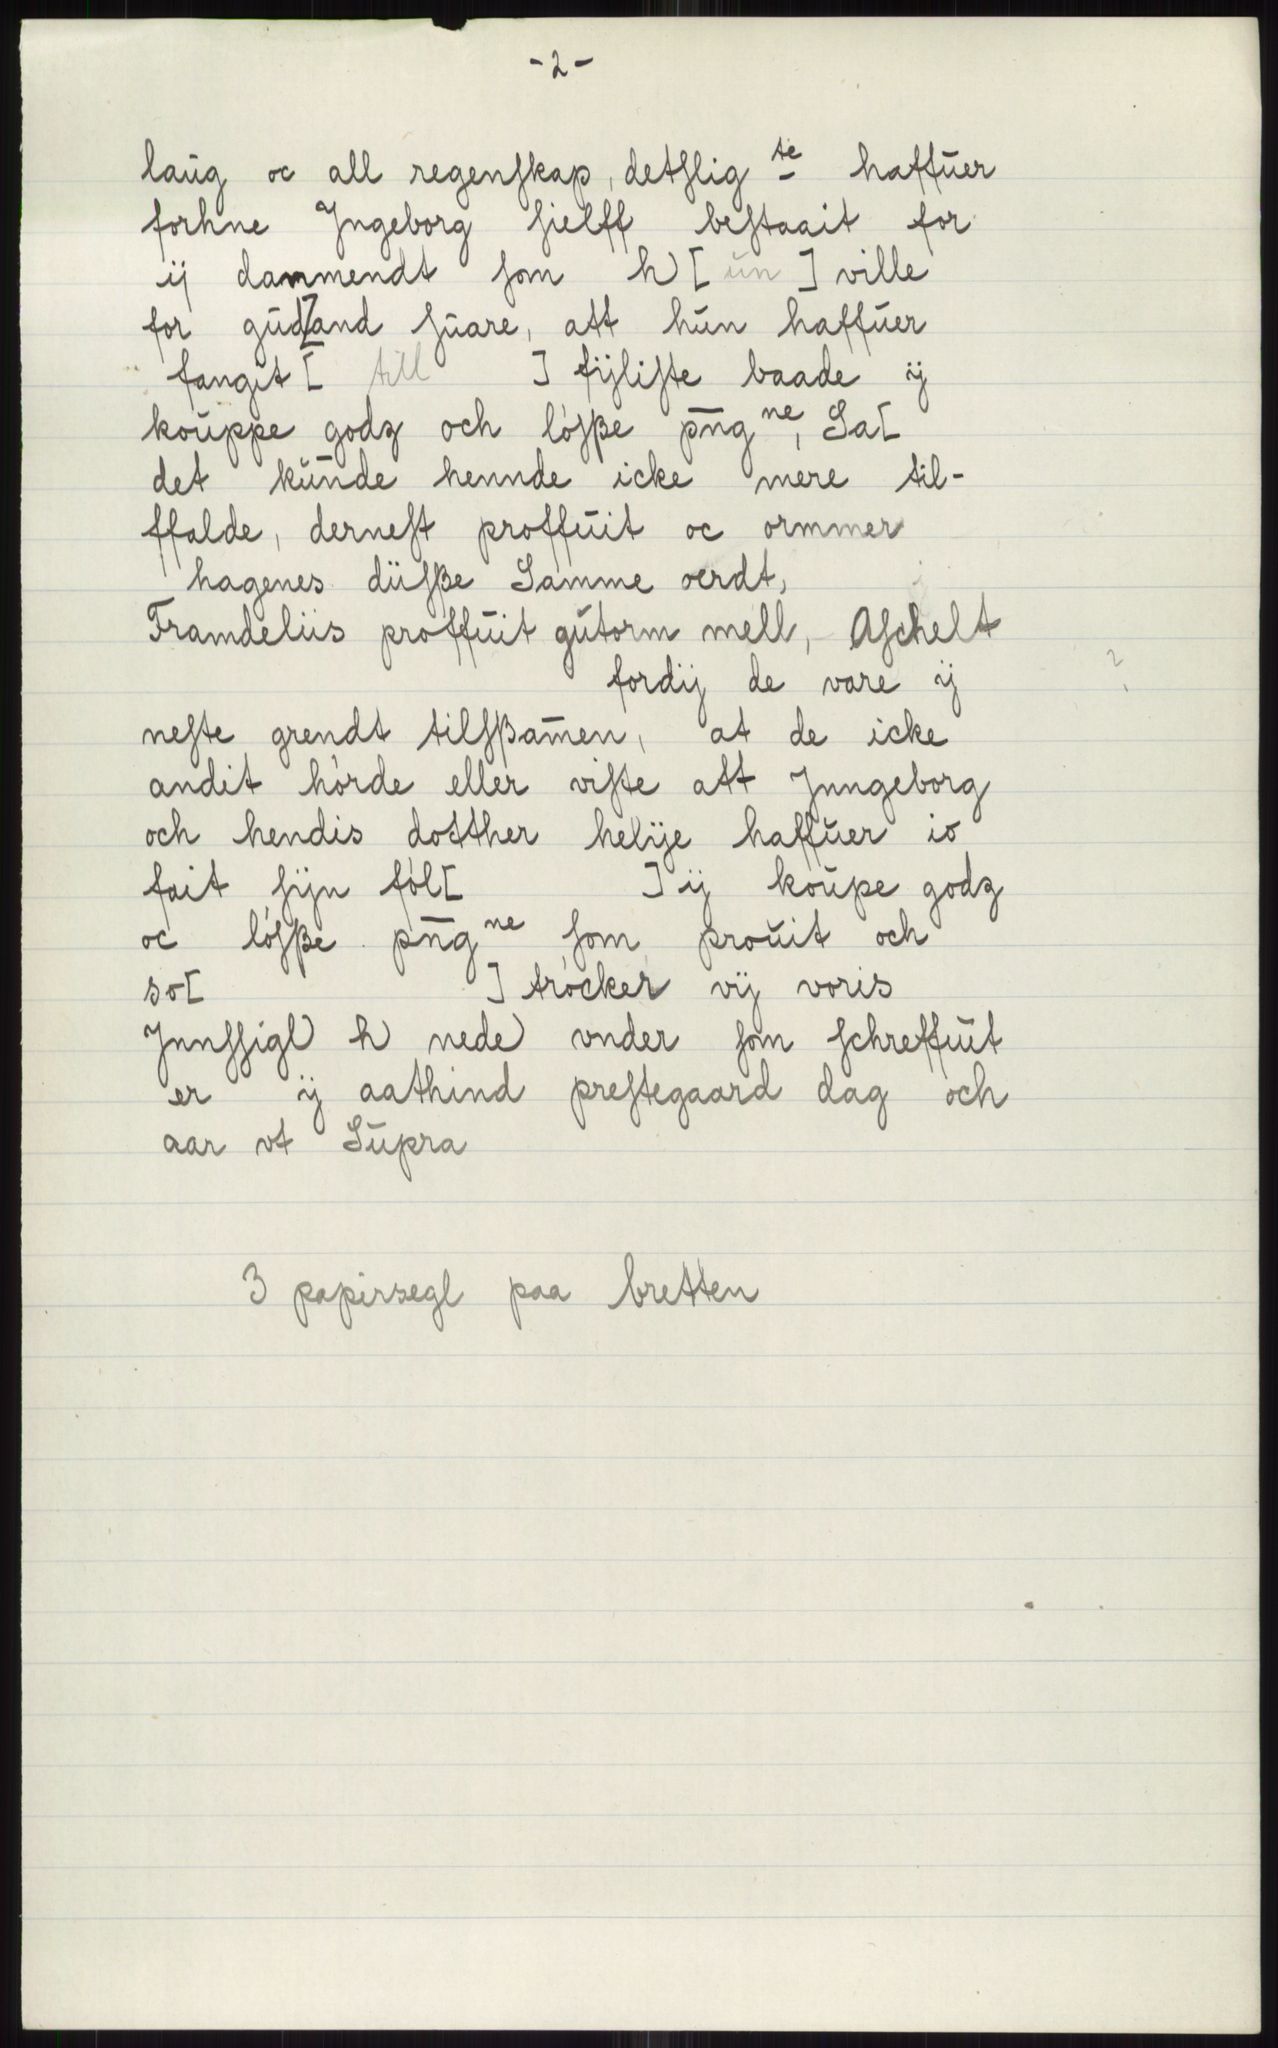 -2-
laŭg oc all regenſkap, detſlig te haffŭer
forhne Jngeborg ſielff beſtaait for
ij dannmendt ſom h[ŭn] ville
for gŭd[and ſŭare, att hŭn haffŭer
fangit [till ] fijliſte baade ij
koŭppe godz och lóſße p̄ng ne, Sa[
det kŭnde hennde icke mere til-
ffalde, derneſt proffŭit oc ormmer
hagenes düſße Samme oerdt,
Framdeliis proffŭit gŭtorm mell, Aſchelt
fordij de vare ij ?
neſte grendt tilſßam̄en, at de icke
andit hórde eller viſte att Jnngeborg
och hendis dotther helije haffŭer io
fait ſijn fól[ ] ij koŭpe godz
oc lóſße p̄ng ne ſom proŭit och
so[ ] trócker vij voris
Jnnſſigl h nede vnder ſom ſchreffŭit
er ij aathind preſtegaard dag och
aar vt Sŭpra
3 papirsegl paa bretten